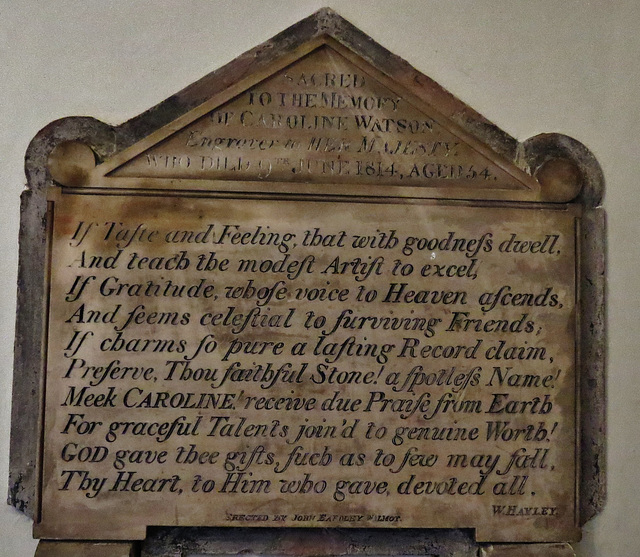 SACRED
TO THE MEMORY
OF CAROLINE WATSON
Engraver to HER MAJESTY.
WHO DIED 9TH JUNE 1814, AGED 54.
If Taſte and Feeling, that with goodneſs dwell,
And teach the modeſt Artiſt to excel,
If Gratitude, whoſe voice to Heaven aſcends,
And ſeems celeſtial to ſurviving Friends;
If charms ſo pure a laſting Record claim,
Preſerve, Thou faithful Stone! a ſpotleſs Name!
Meek CAROLINE! receive due Praiſe from Earth
For graceful Talents join'd to genuine Worth!
GOD gave thee gifts, ſuch as to few may fall,
Thy Heart, to Him who gave, devoted all.
W. HAYLEY.
ERECTED BY JOHN EARDLEY WILMOT.